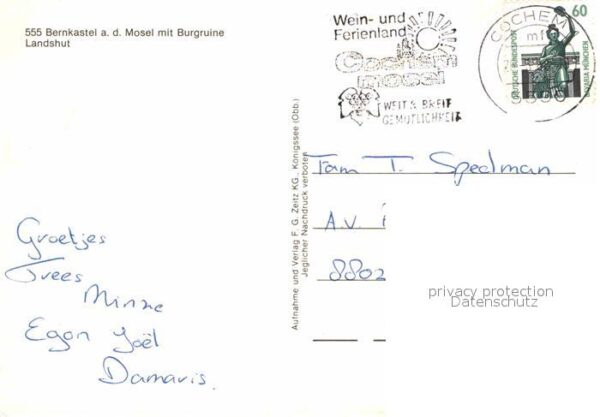 555 Bernkastel a. d. Mosel mit Burgruine
Landshut
Groetjes
Trees
Minze
Egon Joël
Damaris.
Aufnahme und Verlag F. G. Zeitz KG., Königssee (Obb.)
Jeglicher Nachdruck verboten
Wein- und
Ferienland
Cochem
mosel
WEIT & BREIT
GEMÜTLICHKEIT
COCHEM
60
DEUTSCHE BUNDESPOST
BAVARIA MÜNCHEN
Fam T. Spedman
A.V.
8802
privacy protection
Datenschutz